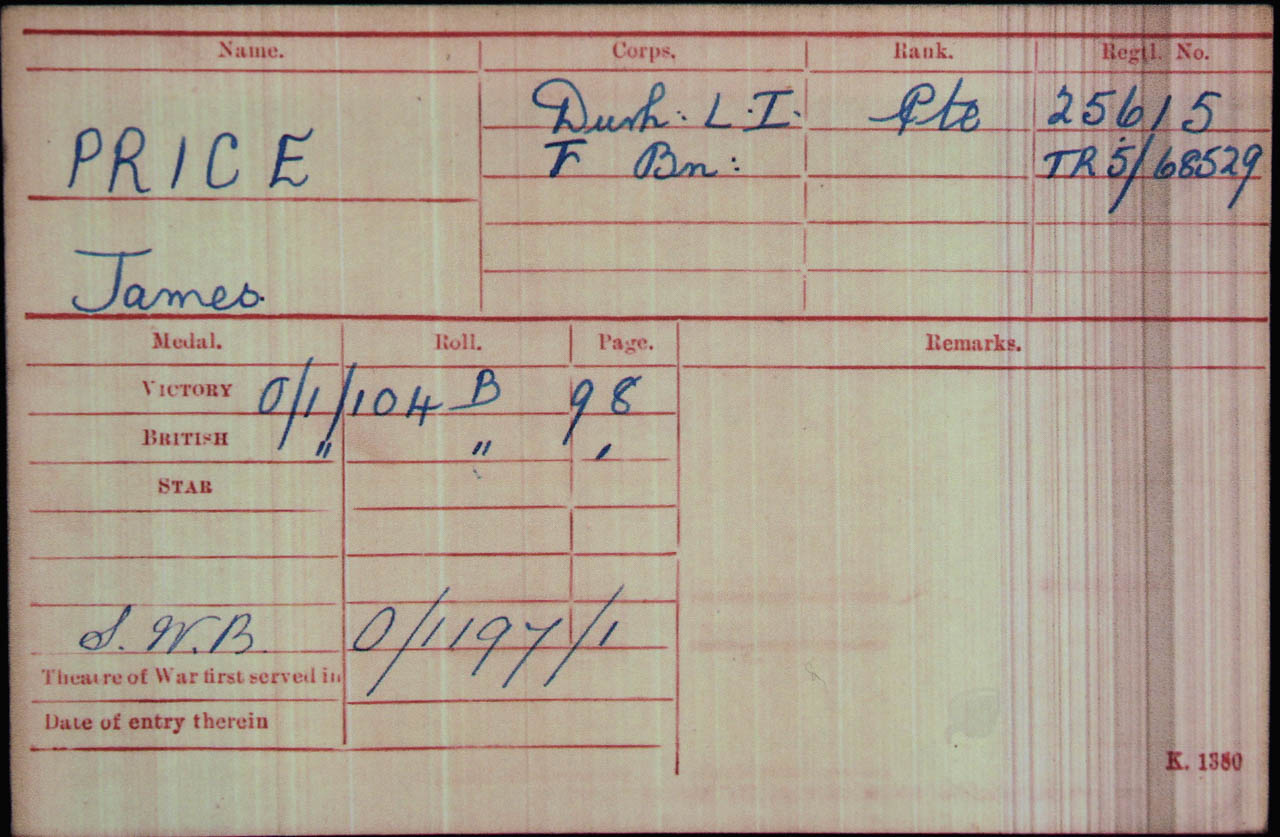 Name. Corps. Rank. Regtl. No.
Durh: L.I. Pte 25615
PRICE T Bn: TR 5/68529
James
Medal. Roll. Page. Remarks.
VICTORY 0/1/104 B 98
BRITISH " " "
STAR
S.W.B. 0/1197/1
Theatre of War first served in
Date of entry therein
K. 1380